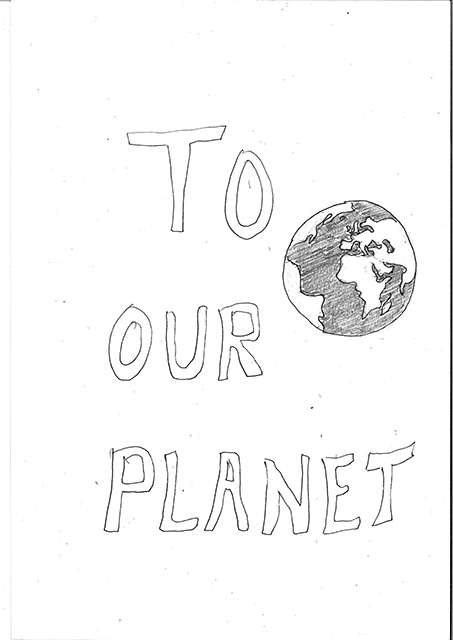 TO
OUR
PLANET